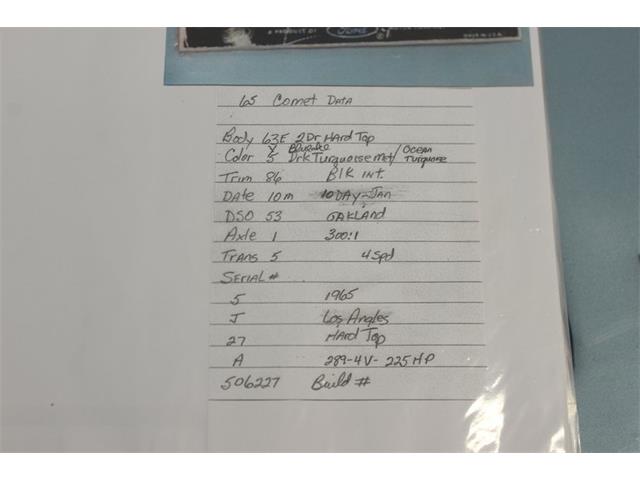 A PRODUCT OF Ford
MADE IN U.S.A.
65 Comet DATA
Body 63E 2Dr Hard Top
Color 5 Drk Turquoise Met/ OCEAN Turquoise
Trim 86 Blk int.
Date 10m 10 DAY-Jan
DSO 53 OAKLAND
Axle 1 300:1
Trans 5 4 Spd
SERIAL #
5 1965
J Los Angles
27 HArd Top
A 289-4V- 225 HP
506227 Build #